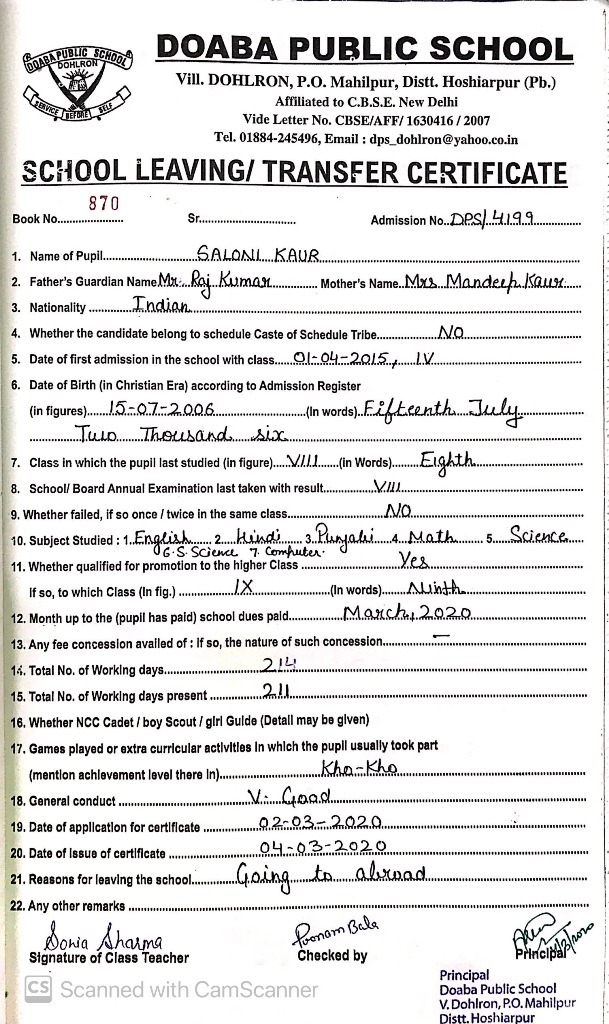 DOABA PUBLIC SCHOOL
DOHLRON
SERVICE BEFORE SELF
DOABA PUBLIC SCHOOL
Vill. DOHLRON, P.O. Mahilpur, Distt. Hoshiarpur (Pb.)
Affiliated to C.B.S.E. New Delhi
Vide Letter No. CBSE/AFF/ 1630416 / 2007
Tel. 01884-245496, Email : dps_dohlron@yahoo.co.in
SCHOOL LEAVING/ TRANSFER CERTIFICATE
Book No. 870 Sr. Admission No. DPS/4199
1. Name of Pupil SALONI KAUR
2. Father's Guardian Name Mr. Raj Kumar Mother's Name Mrs Mandeep Kaur
3. Nationality Indian
4. Whether the candidate belong to schedule Caste of Schedule Tribe NO
5. Date of first admission in the school with class 01-04-2015, IV
6. Date of Birth (in Christian Era) according to Admission Register
(in figures) 15-07-2006 (In words) Fifteenth July
Two Thousand six
7. Class in which the pupil last studied (in figure) VIII (in Words) Eighth
8. School/ Board Annual Examination last taken with result VIII
9. Whether failed, if so once / twice in the same class NO
10. Subject Studied : 1. English 2. Hindi 3. Punjabi 4. Math 5. Science
6. S. Science 7. Computer
11. Whether qualified for promotion to the higher Class Yes
If so, to which Class (In fig.) IX (In words) Ninth
12. Month up to the (pupil has paid) school dues paid March, 2020
13. Any fee concession availed of : If so, the nature of such concession —
14. Total No. of Working days 214
15. Total No. of Working days present 211
16. Whether NCC Cadet / boy Scout / girl Guide (Detail may be given)
17. Games played or extra curricular activities in which the pupil usually took part
(mention achievement level there in) Kho-Kho
18. General conduct V. Good
19. Date of application for certificate 02-03-2020
20. Date of issue of certificate 04-03-2020
21. Reasons for leaving the school Going to abroad
22. Any other remarks
Sonia Sharma Poonam Bala
Signature of Class Teacher Checked by Principal
Principal
Doaba Public School
V. Dohlron, P.O. Mahilpur
Distt. Hoshiarpur
CS Scanned with CamScanner